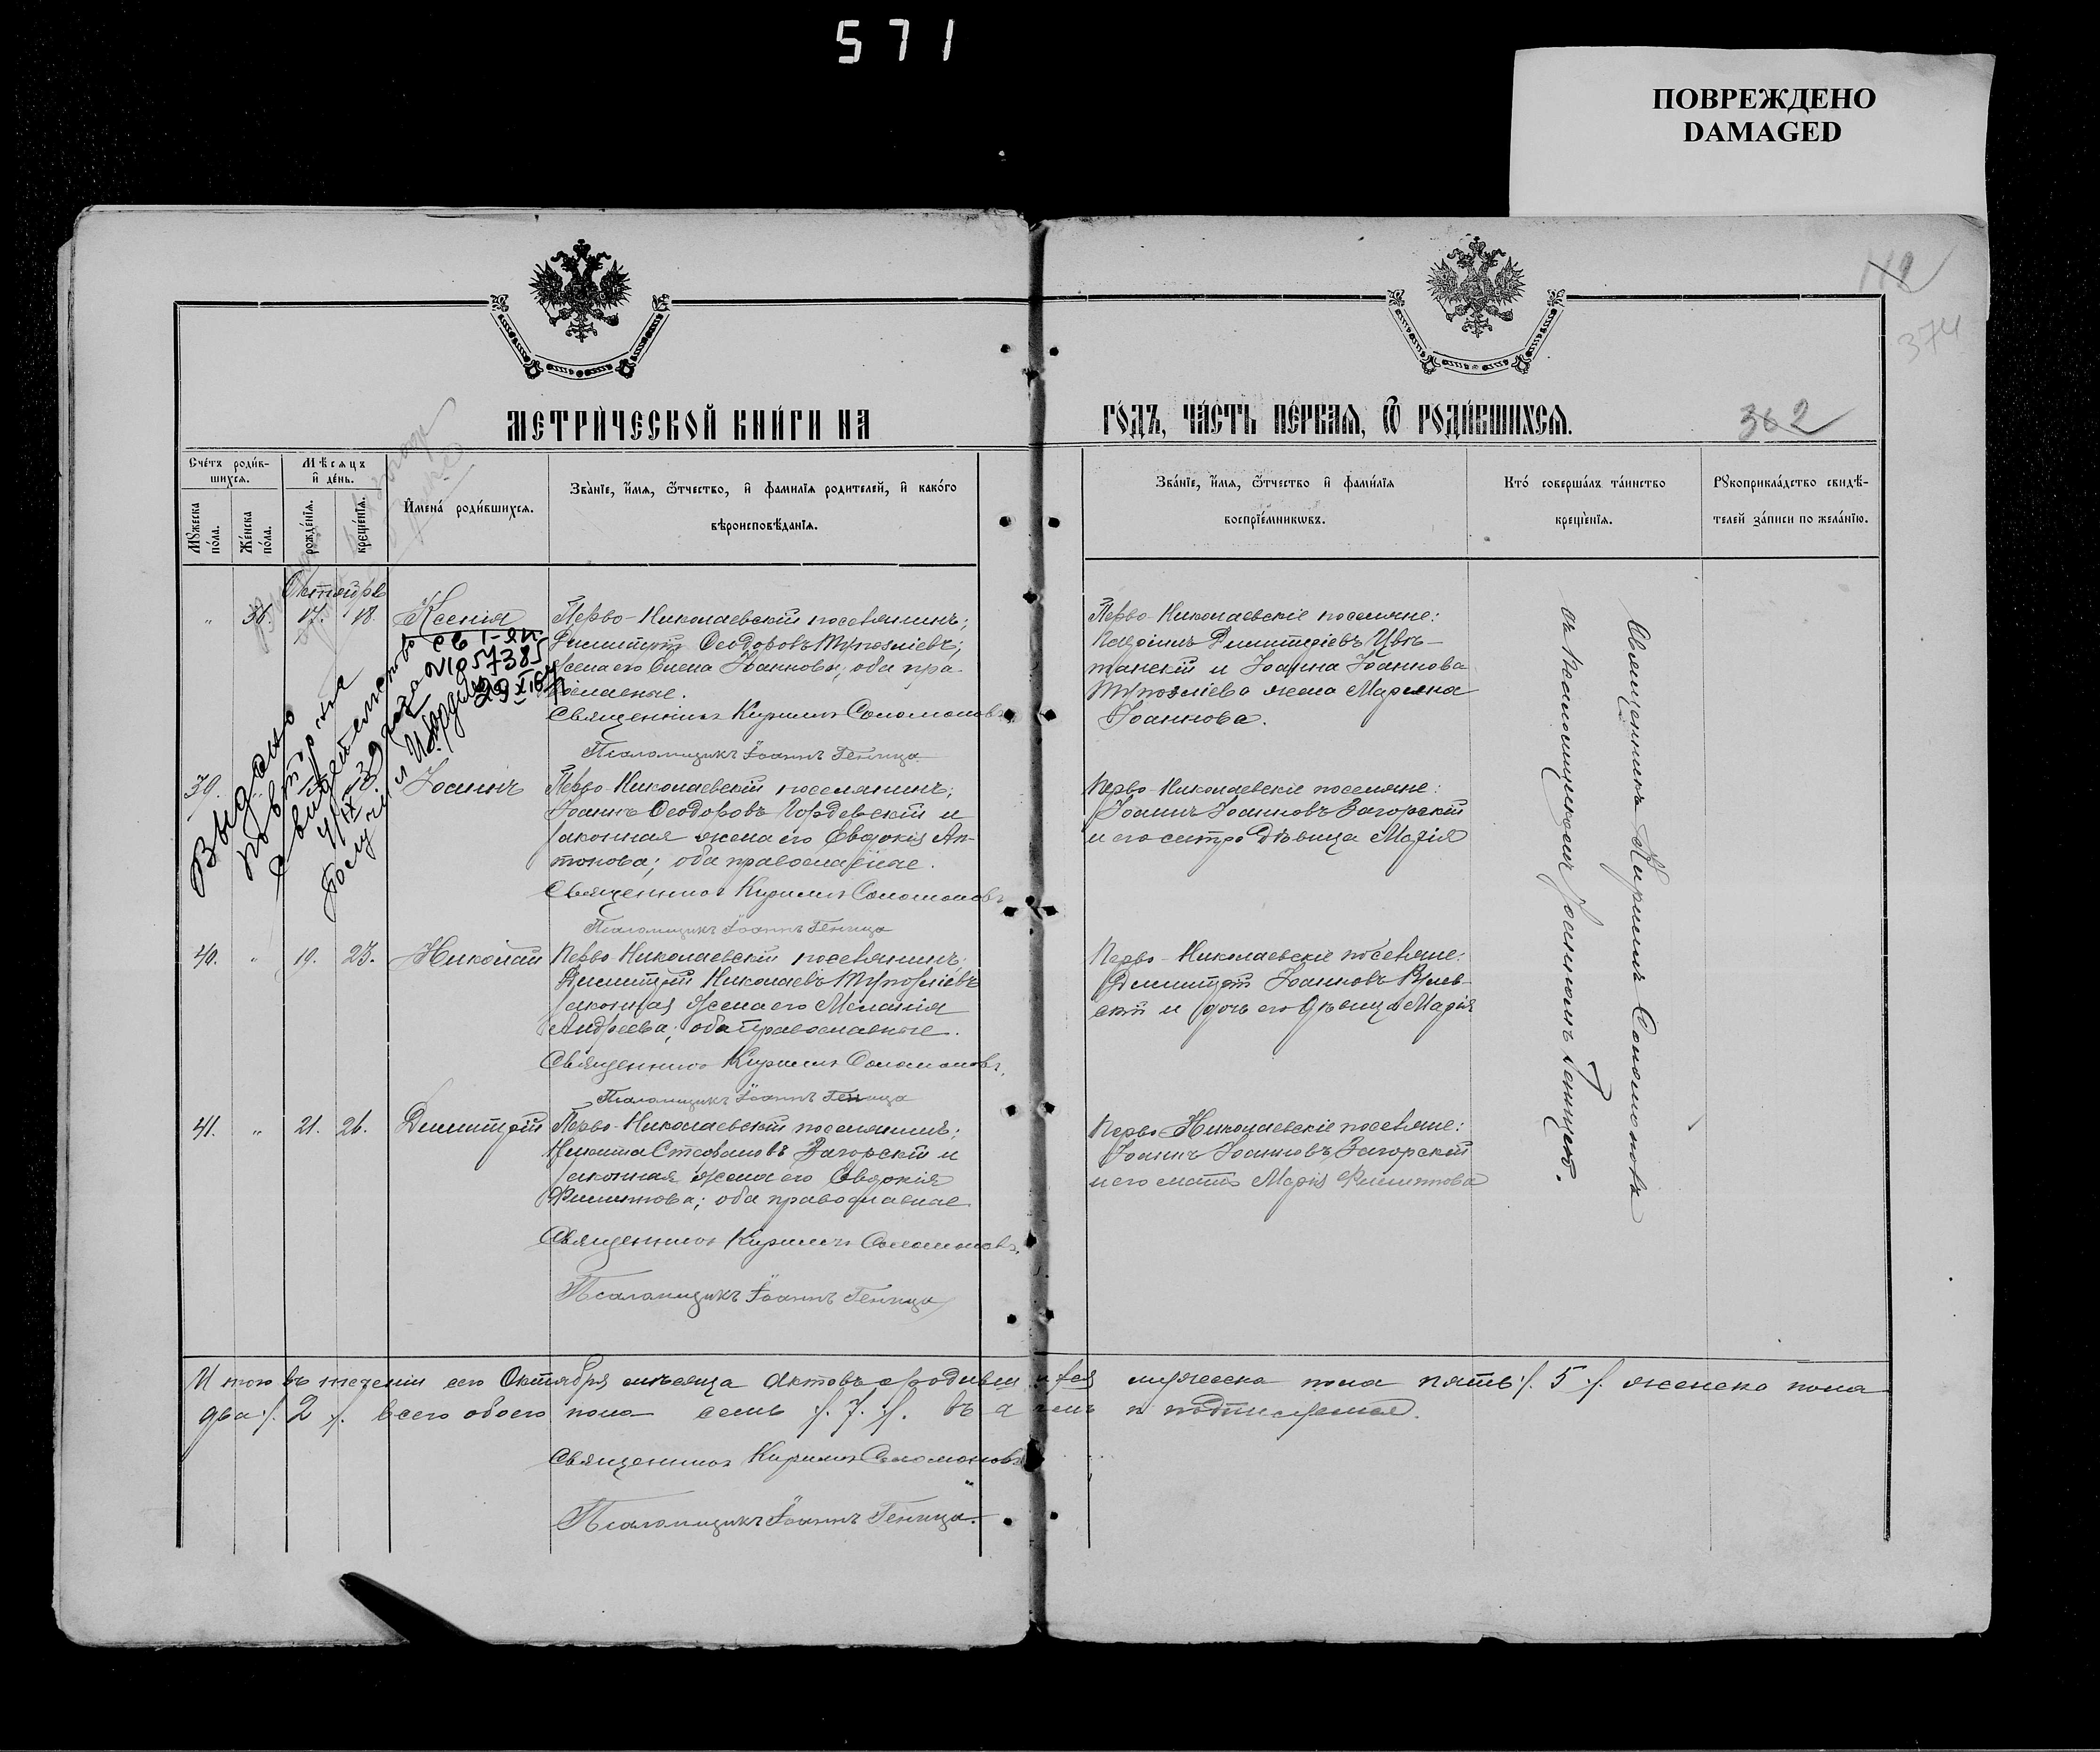 571
ПОВРЕЖДЕНО
DAMAGED
374
362
МЕТРИ́ЧЕСКОЙ КНИ́ГИ НА
ГО́ДЪ, ЧА́СТЬ ПЕ́РВАѦ, Ѿ РОДИ́ВШИХСѦ.
Сче́тъ роди́в-
шихсѧ.
Мꙋжеска по́ла.
Же́нска по́ла.
Мѣсѧцъ и де́нь.
рожде́нїѧ.
креще́нїѧ.
Имена̀ роди́вшихсѧ.
Зва́нїе, и́мѧ, ѻ҆́тчество, и҆ фами́лїѧ роди́телей, и҆ како́гѡ
вѣроисповѣ́данїѧ.
Зва́нїе, и́мѧ, ѻ҆́тчество и҆ фами́лїѧ
воспрїе́мникѡвъ.
Кто̀ соверша́лъ та́инство
креще́нїѧ.
Рꙋкоприкла́дство свидѣ́-
телей за́писи по жела́нїю.
Октябрь
" 38. 17. 18. Ксенія
Перво-Николаевскій поселянинъ;
Димитрій Ѳеодоровъ
жена его Іоаннова, оба пра-
вославные.
Священникъ Кириллъ Соломоновъ.
Псаломщикъ Іоаннъ Геница
Перво-Николаевскіе поселяне:
Димитріевъ Цвѣ-
танскій и Іоанна Іоаннова
жена Марина
Іоаннова.
Выдано
повторное
свидетельство
39. Іоаннъ
Перво-Николаевскій поселянинъ;
Іоаннъ Ѳеодоровъ Гордевскій и
законная жена его Евдокія Ан-
тонова; оба православные.
Священникъ Кириллъ Соломоновъ
Псаломщикъ Іоаннъ Геница
Перво-Николаевскіе поселяне:
Іоаннъ Іоанновъ Загорскій
и его сестра дѣвица Марія
40. " 19. 23. Николай
Перво-Николаевскій поселянинъ;
Димитрій Николаевъ
законная жена его Меланія
Андреева; оба православные.
Священникъ Кириллъ Соломоновъ.
Псаломщикъ Іоаннъ Геница
Перво-Николаевскіе поселяне:
Димитрій Іоанновъ
и дочь его дѣвица Марія
41. " 21. 26. Димитрій
Перво-Николаевскій поселянинъ;
Никита Стефановъ Загорскій и
законная жена его Евдокія
Филиппова; оба православные.
Священникъ Кириллъ Соломоновъ.
Псаломщикъ Іоаннъ Геница
Перво-Николаевскіе поселяне:
Іоаннъ Іоанновъ Загорскій
и его мать Марія Филиппова
Священникъ Кириллъ Соломоновъ
съ псаломщикомъ Іоанномъ Геницею.
Итого въ теченіи сего Октября мѣсяца актовъ о родившихся мужеска пола пять /. 5 /. женска пола
два /. 2 /. всего обоего пола семь /. 7. /. въ чемъ и подписуемся.
Священникъ Кириллъ Соломоновъ
Псаломщикъ Іоаннъ Геница.